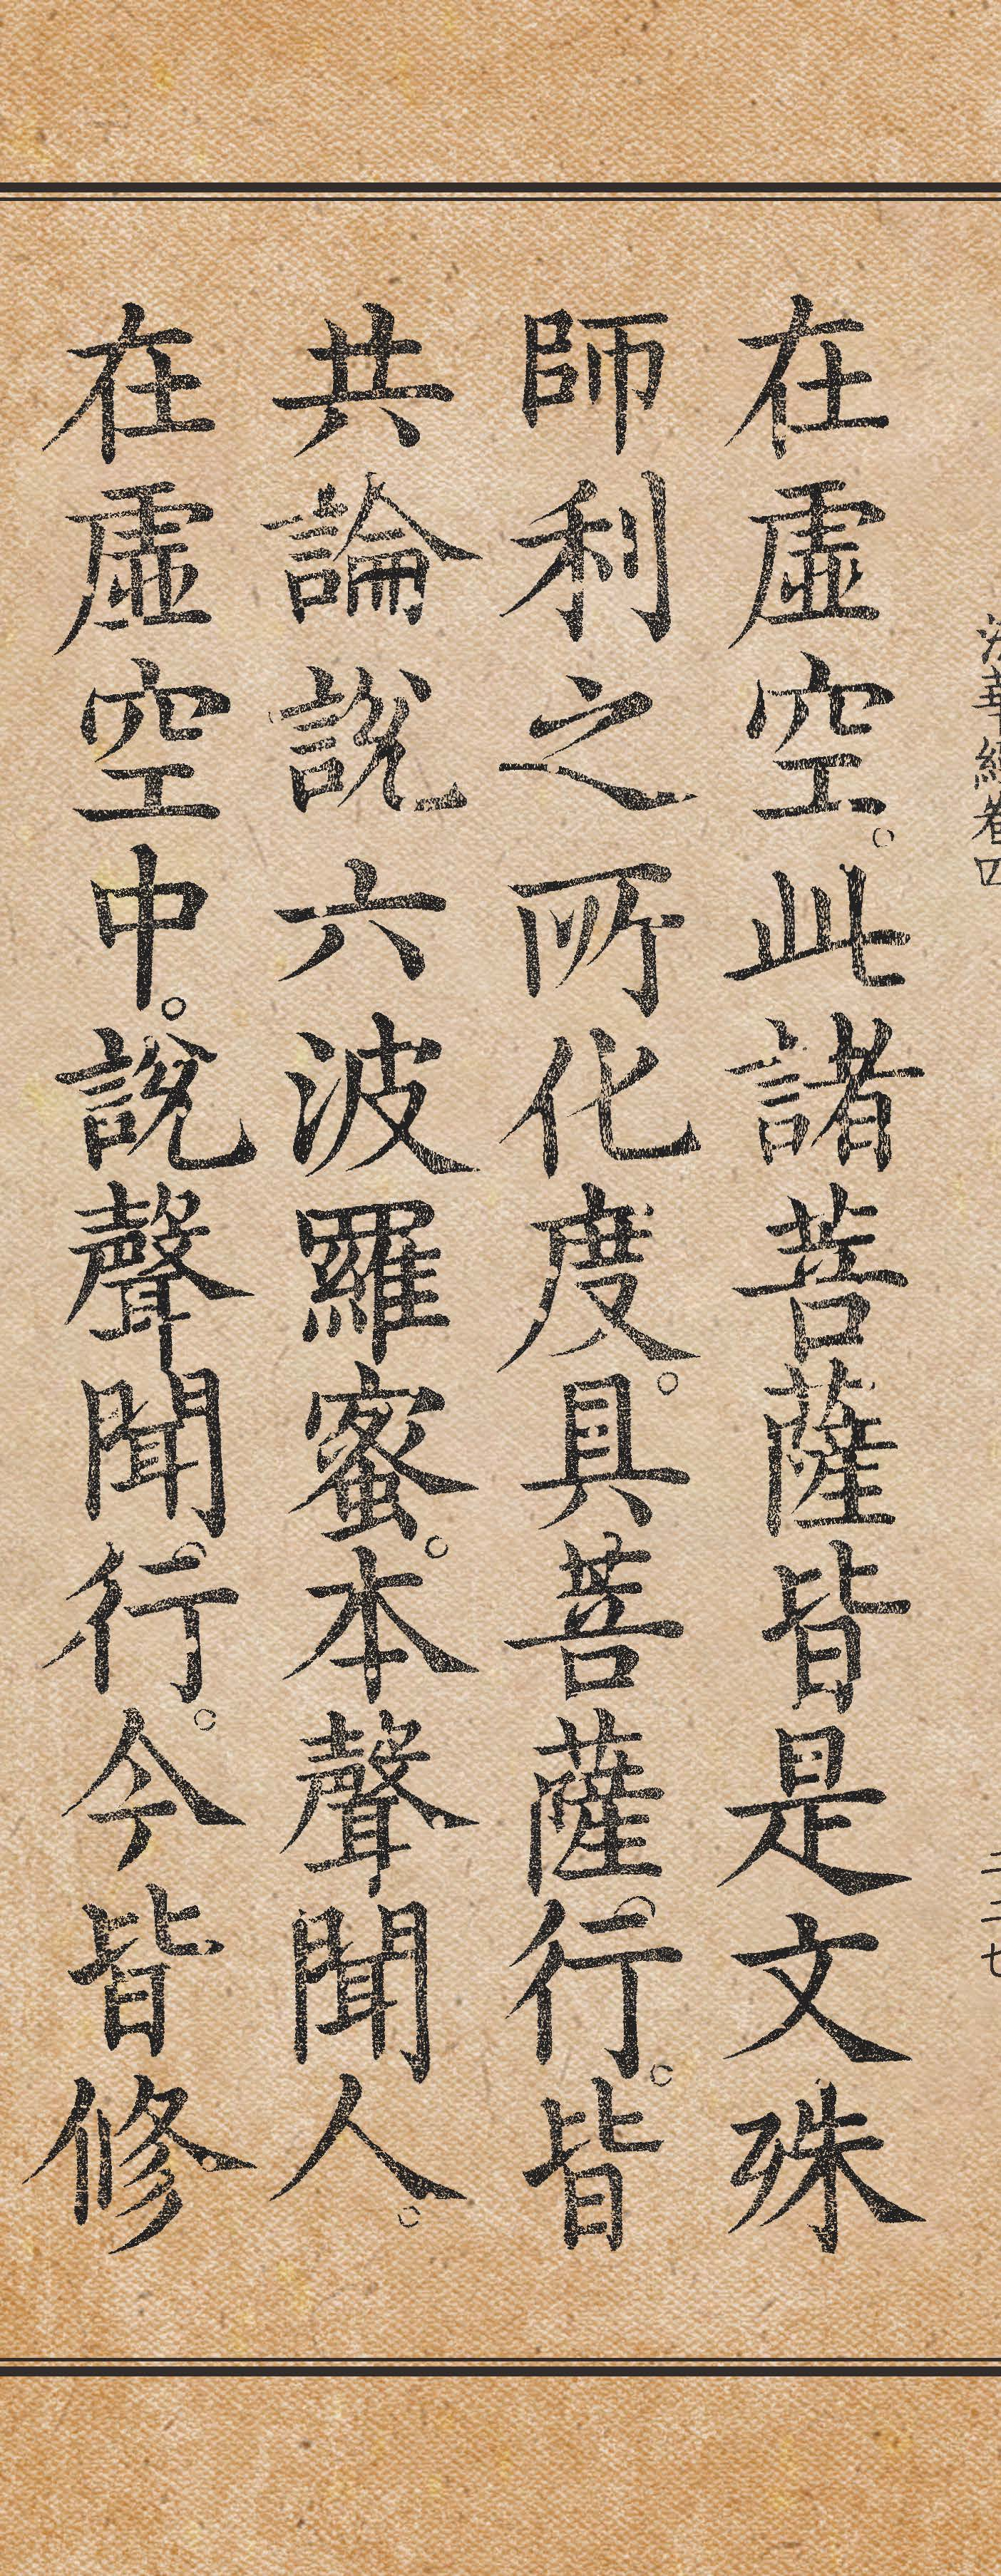 法華經卷四
二二七
在虛空。此諸菩薩皆是文殊
師利之所化度。具菩薩行。皆
共論說六波羅蜜。本聲聞人。
在虛空中。說聲聞行。今皆修